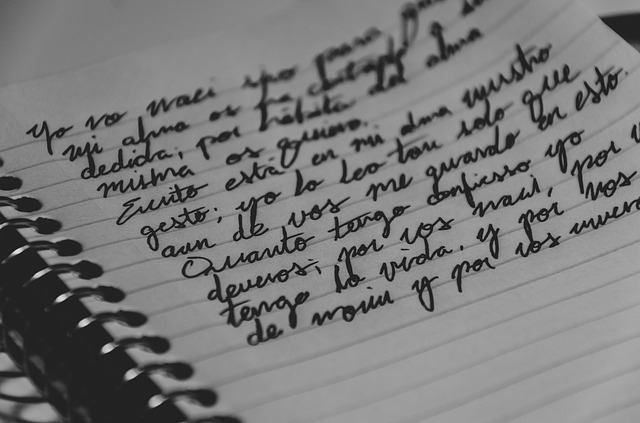 yo no naci sino para
mi alma os ha cortado y
dedida, por hábito del alma
misma os quiero.
Escrito está en mi alma vuestro
gesto; yo lo leo tan solo que
aun de vos me guardo en esto.
Quanto tengo confiesso yo
deveros; por vos naci, por
tengo la vida, y por vos
de morir y por vos muero